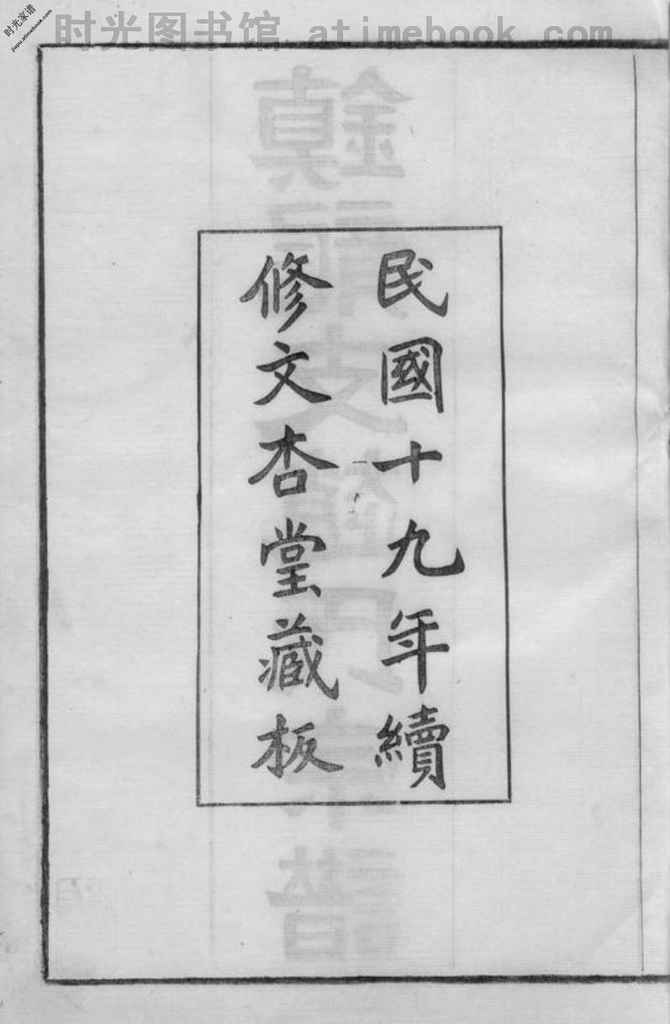 时光图书馆 atimebook.com
时光家谱
民國十九年續
修文杏堂藏板